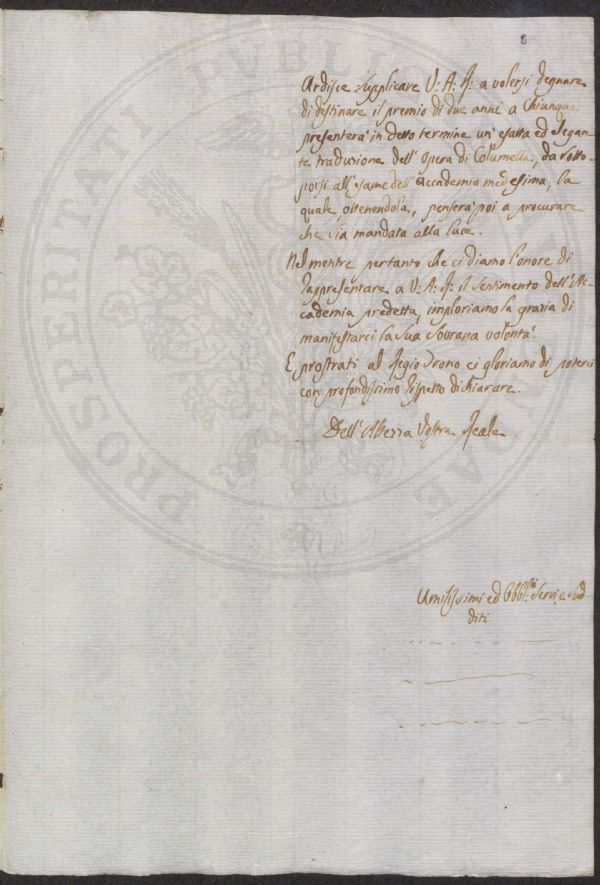 8
Ardisce supplicare V: A: R: a volersi degnare
di destinare il premio di due anni a chiunque
presenterà in detto termine un' esatta ed elegan-
te traduzione dell' opera di Columella, da sotto-
porsi all' esame dell' Accademia medesima, la
quale, ottenendola, penserà poi a procurare
che sia mandata alla luce.
Nel mentre pertanto che ci diamo l'onore di
rappresentare a V: A: R: il sentimento dell' Ac-
cademia predetta, imploriamo la grazia di
manifestarci la Sua Sovrana volontà.
E prostrati al Regio Trono ci gloriamo di poterci
con profondissimo rispetto dichiarare.
Dell' Altezza Vostra Reale.
Umilissimi ed Obbl:mi Servi, e Sud-
diti
PROSPERITATI PUBLICAE AUGENDAE